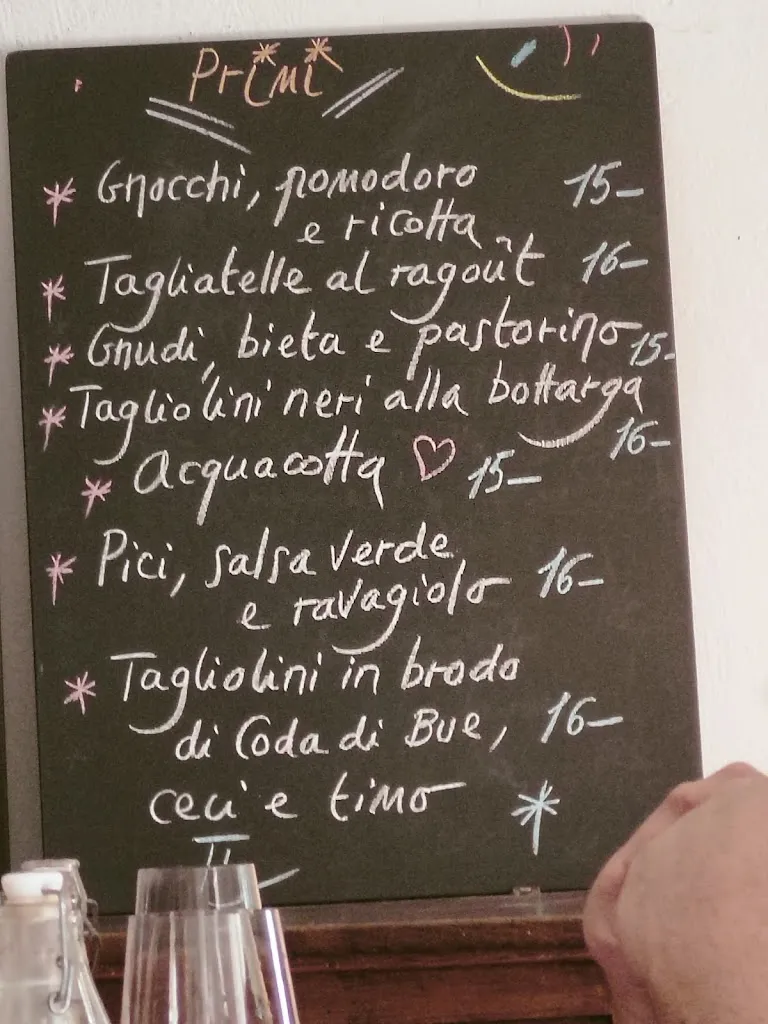 Primi
Gnocchi, pomodoro 15-
e ricotta
Tagliatelle al ragoût 16-
Gnudi, bieta e pastorino 15-
Tagliolini neri alla bottarga
16-
Acquacotta ♡ 15-
Pici, salsa verde
e ravagiolo 16-
Tagliolini in brodo
di Coda di Bue, 16-
ceci e timo